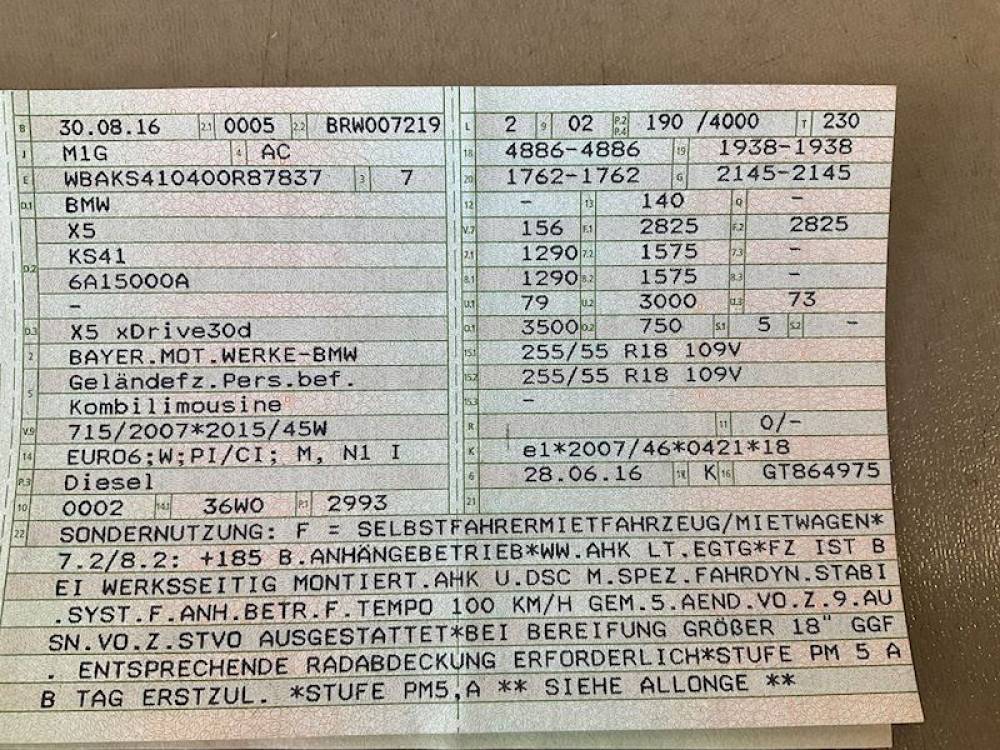 B 30.08.16 2.1 0005 2.2 BRW007219
J M1G 4 AC
E WBAKS410400R87837 3 7
D.1 BMW
X5
D.2 KS41
6A15000A
-
D.3 X5 xDrive30d
2 BAYER.MOT.WERKE-BMW
5 Geländefz.Pers.bef.
Kombilimousine
V.9 715/2007*2015/45W
14 EURO6;W;PI/CI; M, N1 I
P.3 Diesel
10 0002 14.1 36W0 P.1 2993
L 2 9 02 P.2 P.4 190 /4000 T 230
18 4886-4886 19 1938-1938
20 1762-1762 G 2145-2145
12 - 13 140 Q -
V.7 156 F.1 2825 F.2 2825
7.1 1290 7.2 1575 7.3 -
8.1 1290 8.2 1575 8.3 -
U.1 79 U.2 3000 U.3 73
O.1 3500 O.2 750 S.1 5 S.2 -
15.1 255/55 R18 109V
15.2 255/55 R18 109V
15.3 -
R 11 0/-
K e1*2007/46*0421*18
6 28.06.16 17 K 16 GT864975
21
22 SONDERNUTZUNG: F = SELBSTFAHRERMIETFAHRZEUG/MIETWAGEN*
7.2/8.2: +185 B.ANHÄNGEBETRIEB*WW.AHK LT.EGTG*FZ IST B
EI WERKSSEITIG MONTIERT.AHK U.DSC M.SPEZ.FAHRDYN.STABI
.SYST.F.ANH.BETR.F.TEMPO 100 KM/H GEM.5.AEND.VO.Z.9.AU
SN.VO.Z.STVO AUSGESTATTET*BEI BEREIFUNG GRÖßER 18" GGF
. ENTSPRECHENDE RADABDECKUNG ERFORDERLICH*STUFE PM 5 A
B TAG ERSTZUL. *STUFE PM5,A ** SIEHE ALLONGE **